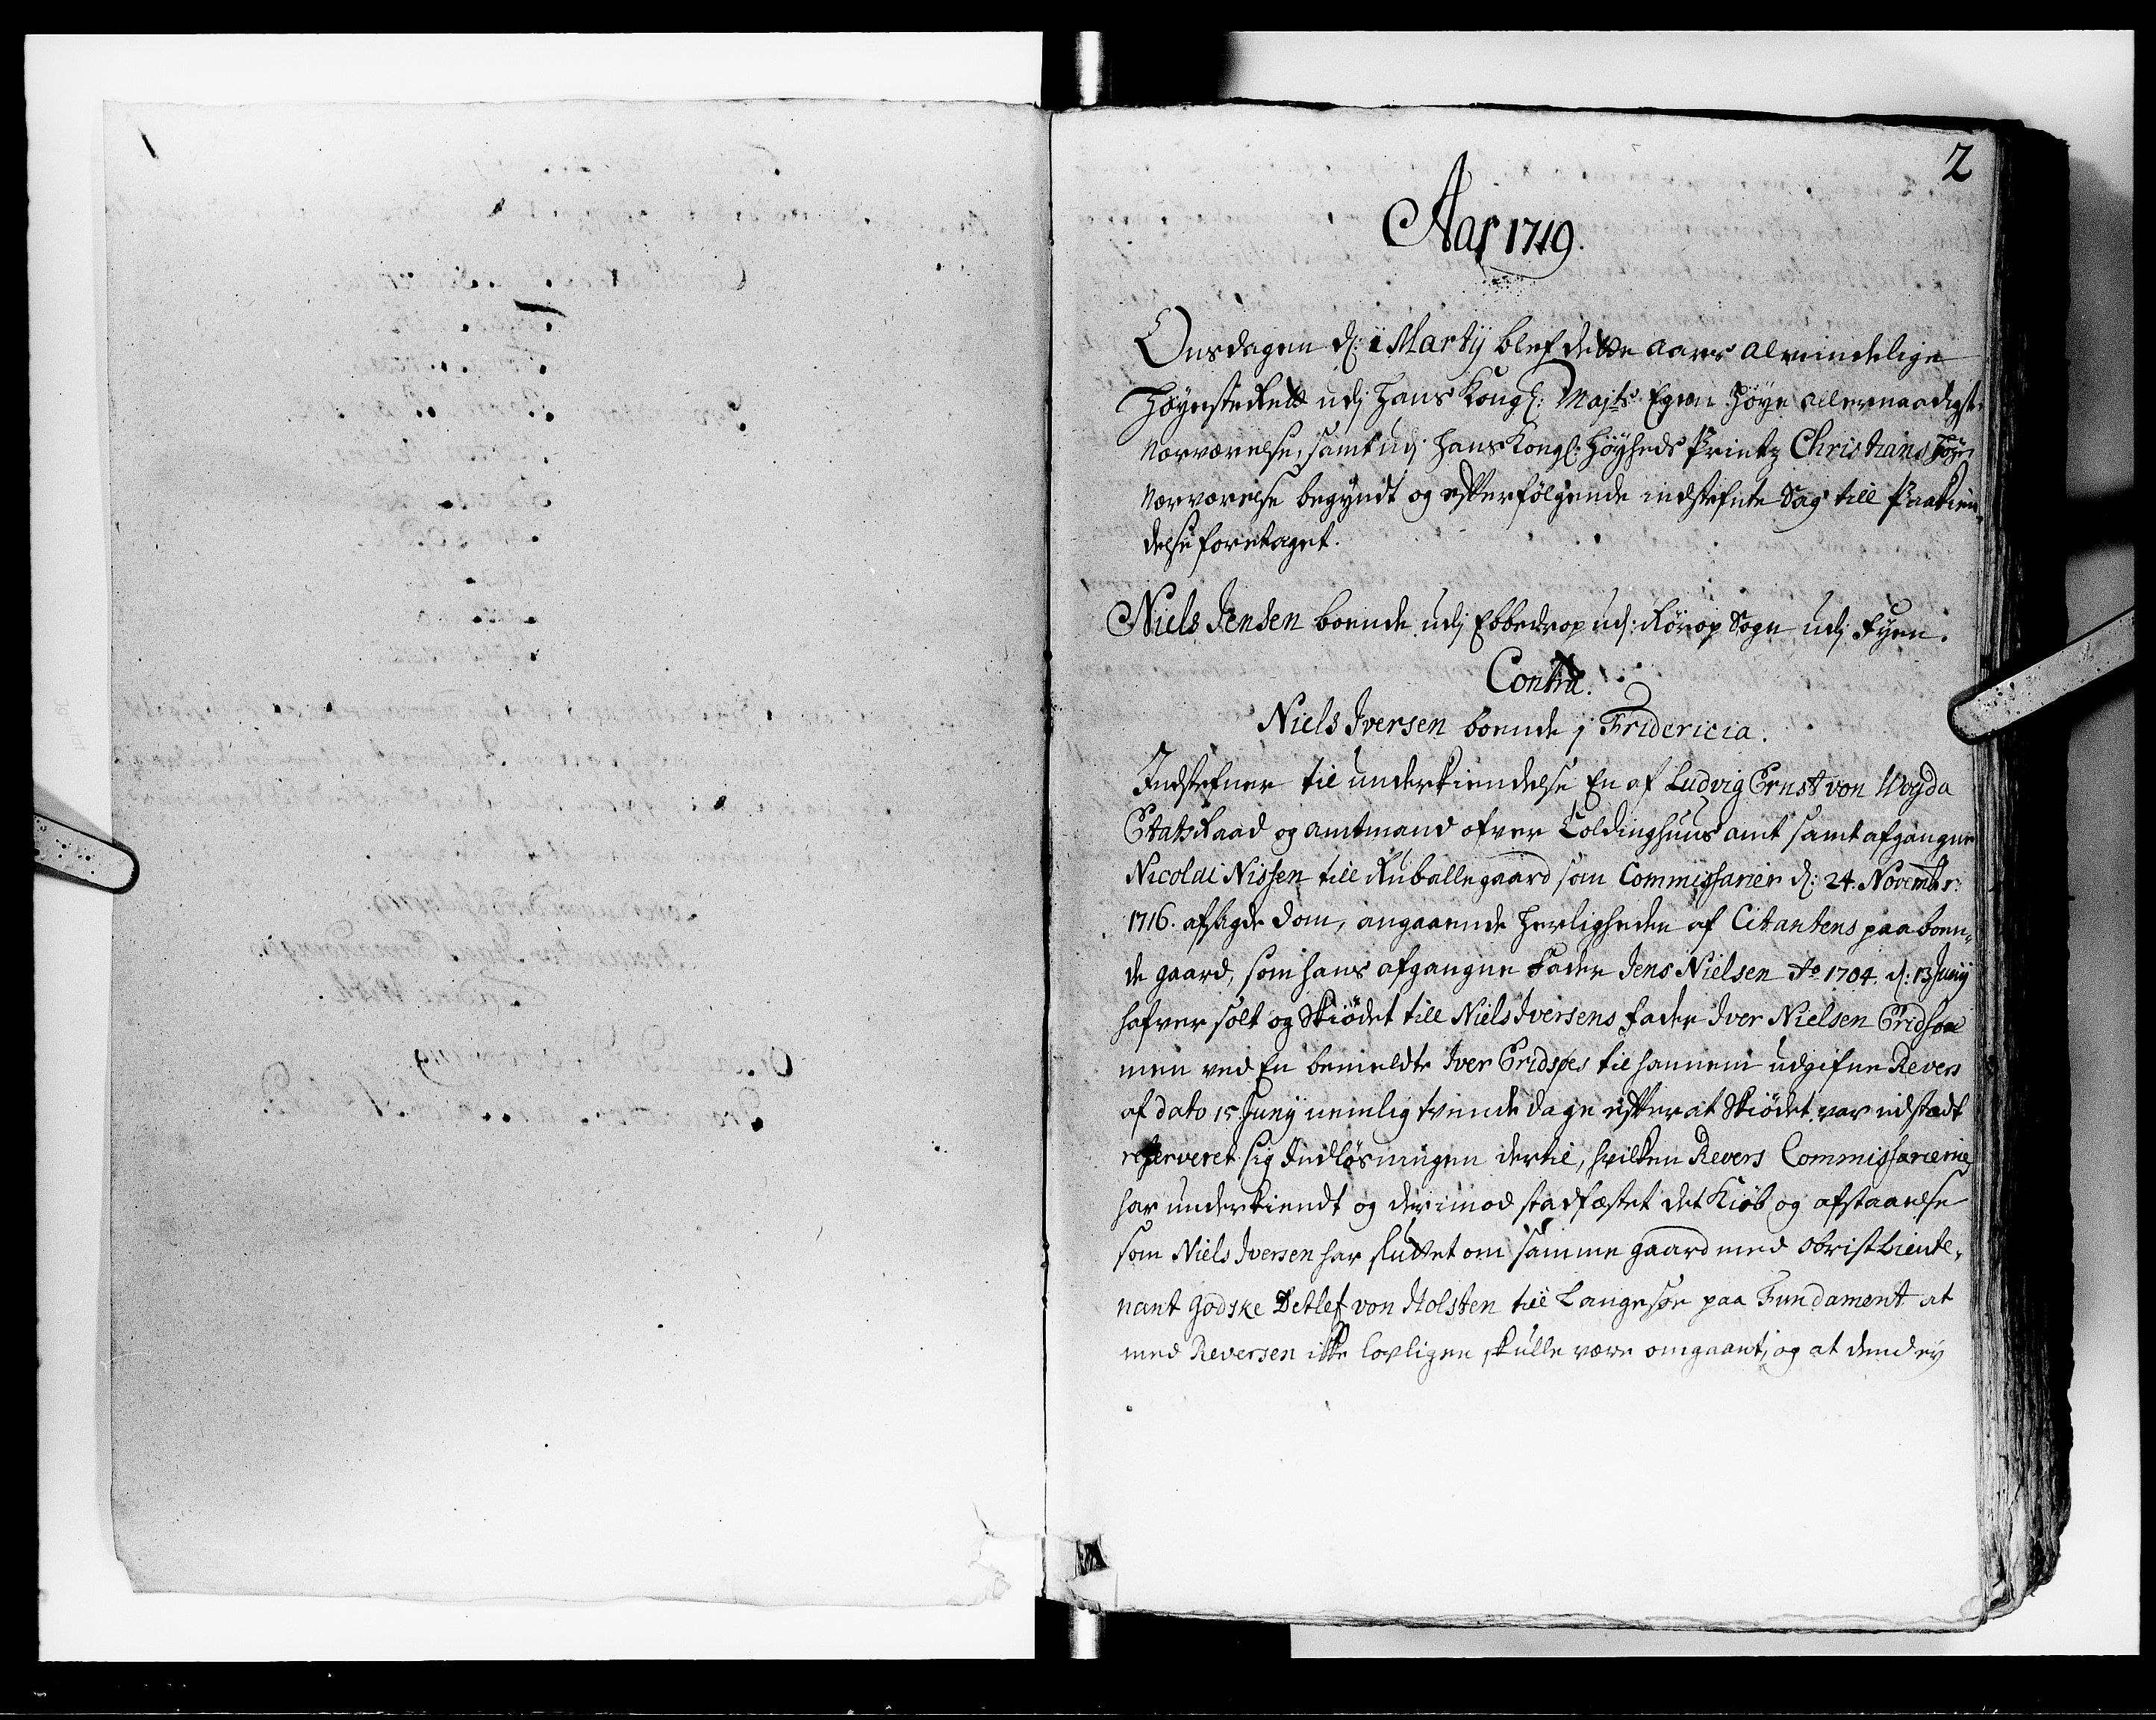 2
Aar 1719.
Onsdagen d: 1 Martij blef dette aars almindelige
Høyeste Rett udj Hans Kongl: Majts Egen Høye allernaadigste
Nærværelse, samt udj Hans Kongl: Høyheds Printz Christians Høye
Nærværelse begyndt og efterfølgende indstefnte Sag till Paakien„
delse foretaget.
Niels Jensen boende udj Ebbedrop udj Rørop Sogn udj Fyen.
Contra.
Niels Iversen boende j Fridericia.
Indstefner til underkiendelse En af Ludvig Ernst von Woyda
Etats Raad og amtmand ofver Coldinghuus amt samt afgangne
Nicolai Nissen till Ruballegaard som Commissarier d: 24. Novembr:
1716. afsagde dom, angaaende Herligheden af Citantens paaboen„
de gaard, som hans afgangne Fader Jens Nielsen Ao 1704. d: 13 Junij
hafver solt og Skiødet till Niels Iversens Fader Iver Nielsen Gridsøe
men ved En bemeldte Iver Gridsøes til hannem udgifne Revers
af dato 15 Junij nemlig tvende dage efter at Skiødet var udstædt
reserveret sig Indløsningen dertil, hvilken Revers Commissarierne
har underkiendt og derimod stadfæstet det Kiøb og afstaaelse
som Niels Iversen har sluttet om samme gaard med Obrist Lieute„
nant Godske Detlef von Holsten till Langesøe paa Fundament at
med Reversen ikke lovligen skulle være omgaaet, og at dend ey